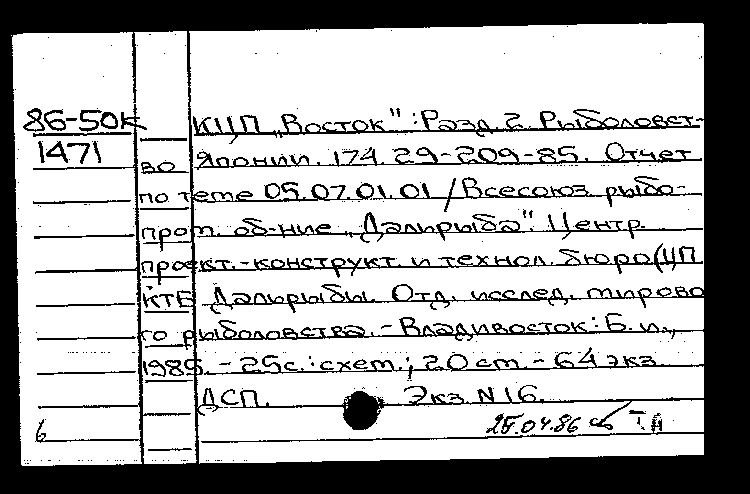 86-50к КЦП „Восток": Разд. 2. Рыболовст-
1471 во Японии. 174.29-209-85. Отчет
по теме 05.07.01.01 / Всесоюз. рыбо-
пром. об-ние „Дальрыба". Центр.
проект.-конструкт. и технол. бюро (ЦП
КТБ Дальрыбы. Отд. исслед. мирово
го рыболовства. - Владивосток: Б. и.,
1985. - 25 с.: схем.; 20 см. - 64 экз.
ДСП. Экз. N 16.
6 04.86